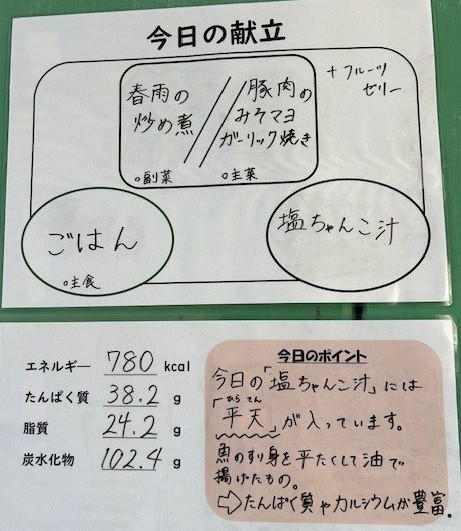 今日の献立
春雨の
炒め煮
○副菜
豚肉の
みそマヨ
ガーリック焼き
○主菜
+フルーツ
ゼリー
ごはん
○主食
塩ちゃんこ汁
エネルギー 780 kcal
たんぱく質 38.2 g
脂質 24.2 g
炭水化物 102.4 g
今日のポイント
今日の「塩ちゃんこ汁」には
ひら てん
「平天」が入っています。
魚のすり身を平たくして油で
揚げたもの。
⇨たんぱく質やカルシウムが豊富。